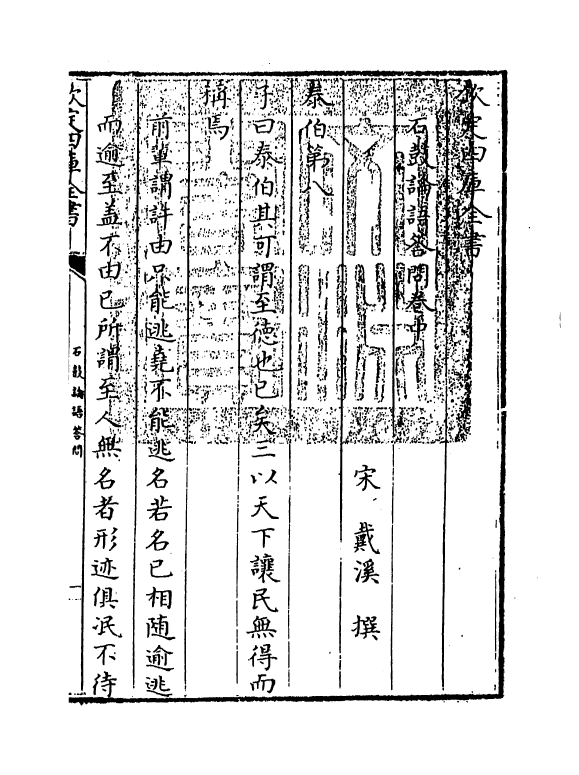 欽定四庫全書
石鼓論語答問卷中
宋 戴溪 撰
泰伯第八
子曰泰伯其可謂至德也已矣三以天下讓民無得而
稱焉
前輩謂許由只能逃堯不能逃名若名已相随逾逃
而逾至盖不由已所謂至人無名者形迹俱泯不待
欽定四庫全書
石鼓論語答問
一